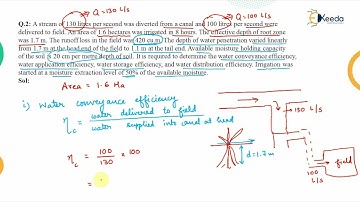 Q→130 L/s
Q→100 L/s
Ekeeda
Q.2: A stream of 130 litres per second was diverted from a canal and 100 litres per second were
delivered to field. An area of 1.6 hectares was irrigated in 8 hours. The effective depth of root zone
was 1.7 m. The runoff loss in the field was 420 cu m. The depth of water penetration varied linearly
from 1.7 m at the head end of the field to 1.1 m at the tail end. Available moisture holding capacity
of the soil is 20 cm per metre depth of soil. It is required to determine the water conveyance efficiency,
water application efficiency, water storage efficiency, and water distribution efficiency. Irrigation was
started at a moisture extraction level of 50% of the available moisture.
Sol:
Area = 1.6 Ha
i) Water conveyance efficiency
ηc = water delivered to field
water supplied into canal at head
130 L/s
ηc = 100 × 100
130
d=1.7m
field
100 L/s
=